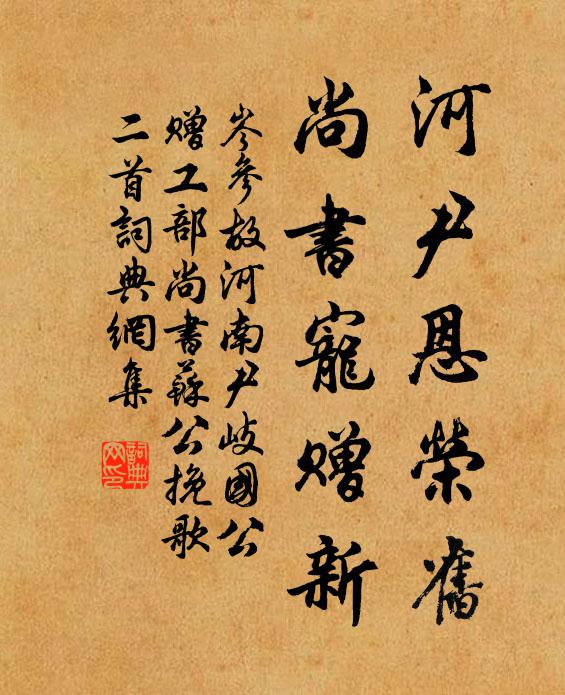 河尹恩榮舊
尚書寵贈新
岑參故河南尹岐國公
贈工部尚書蘇公挽歌
二首詞典網集
詞典
网印